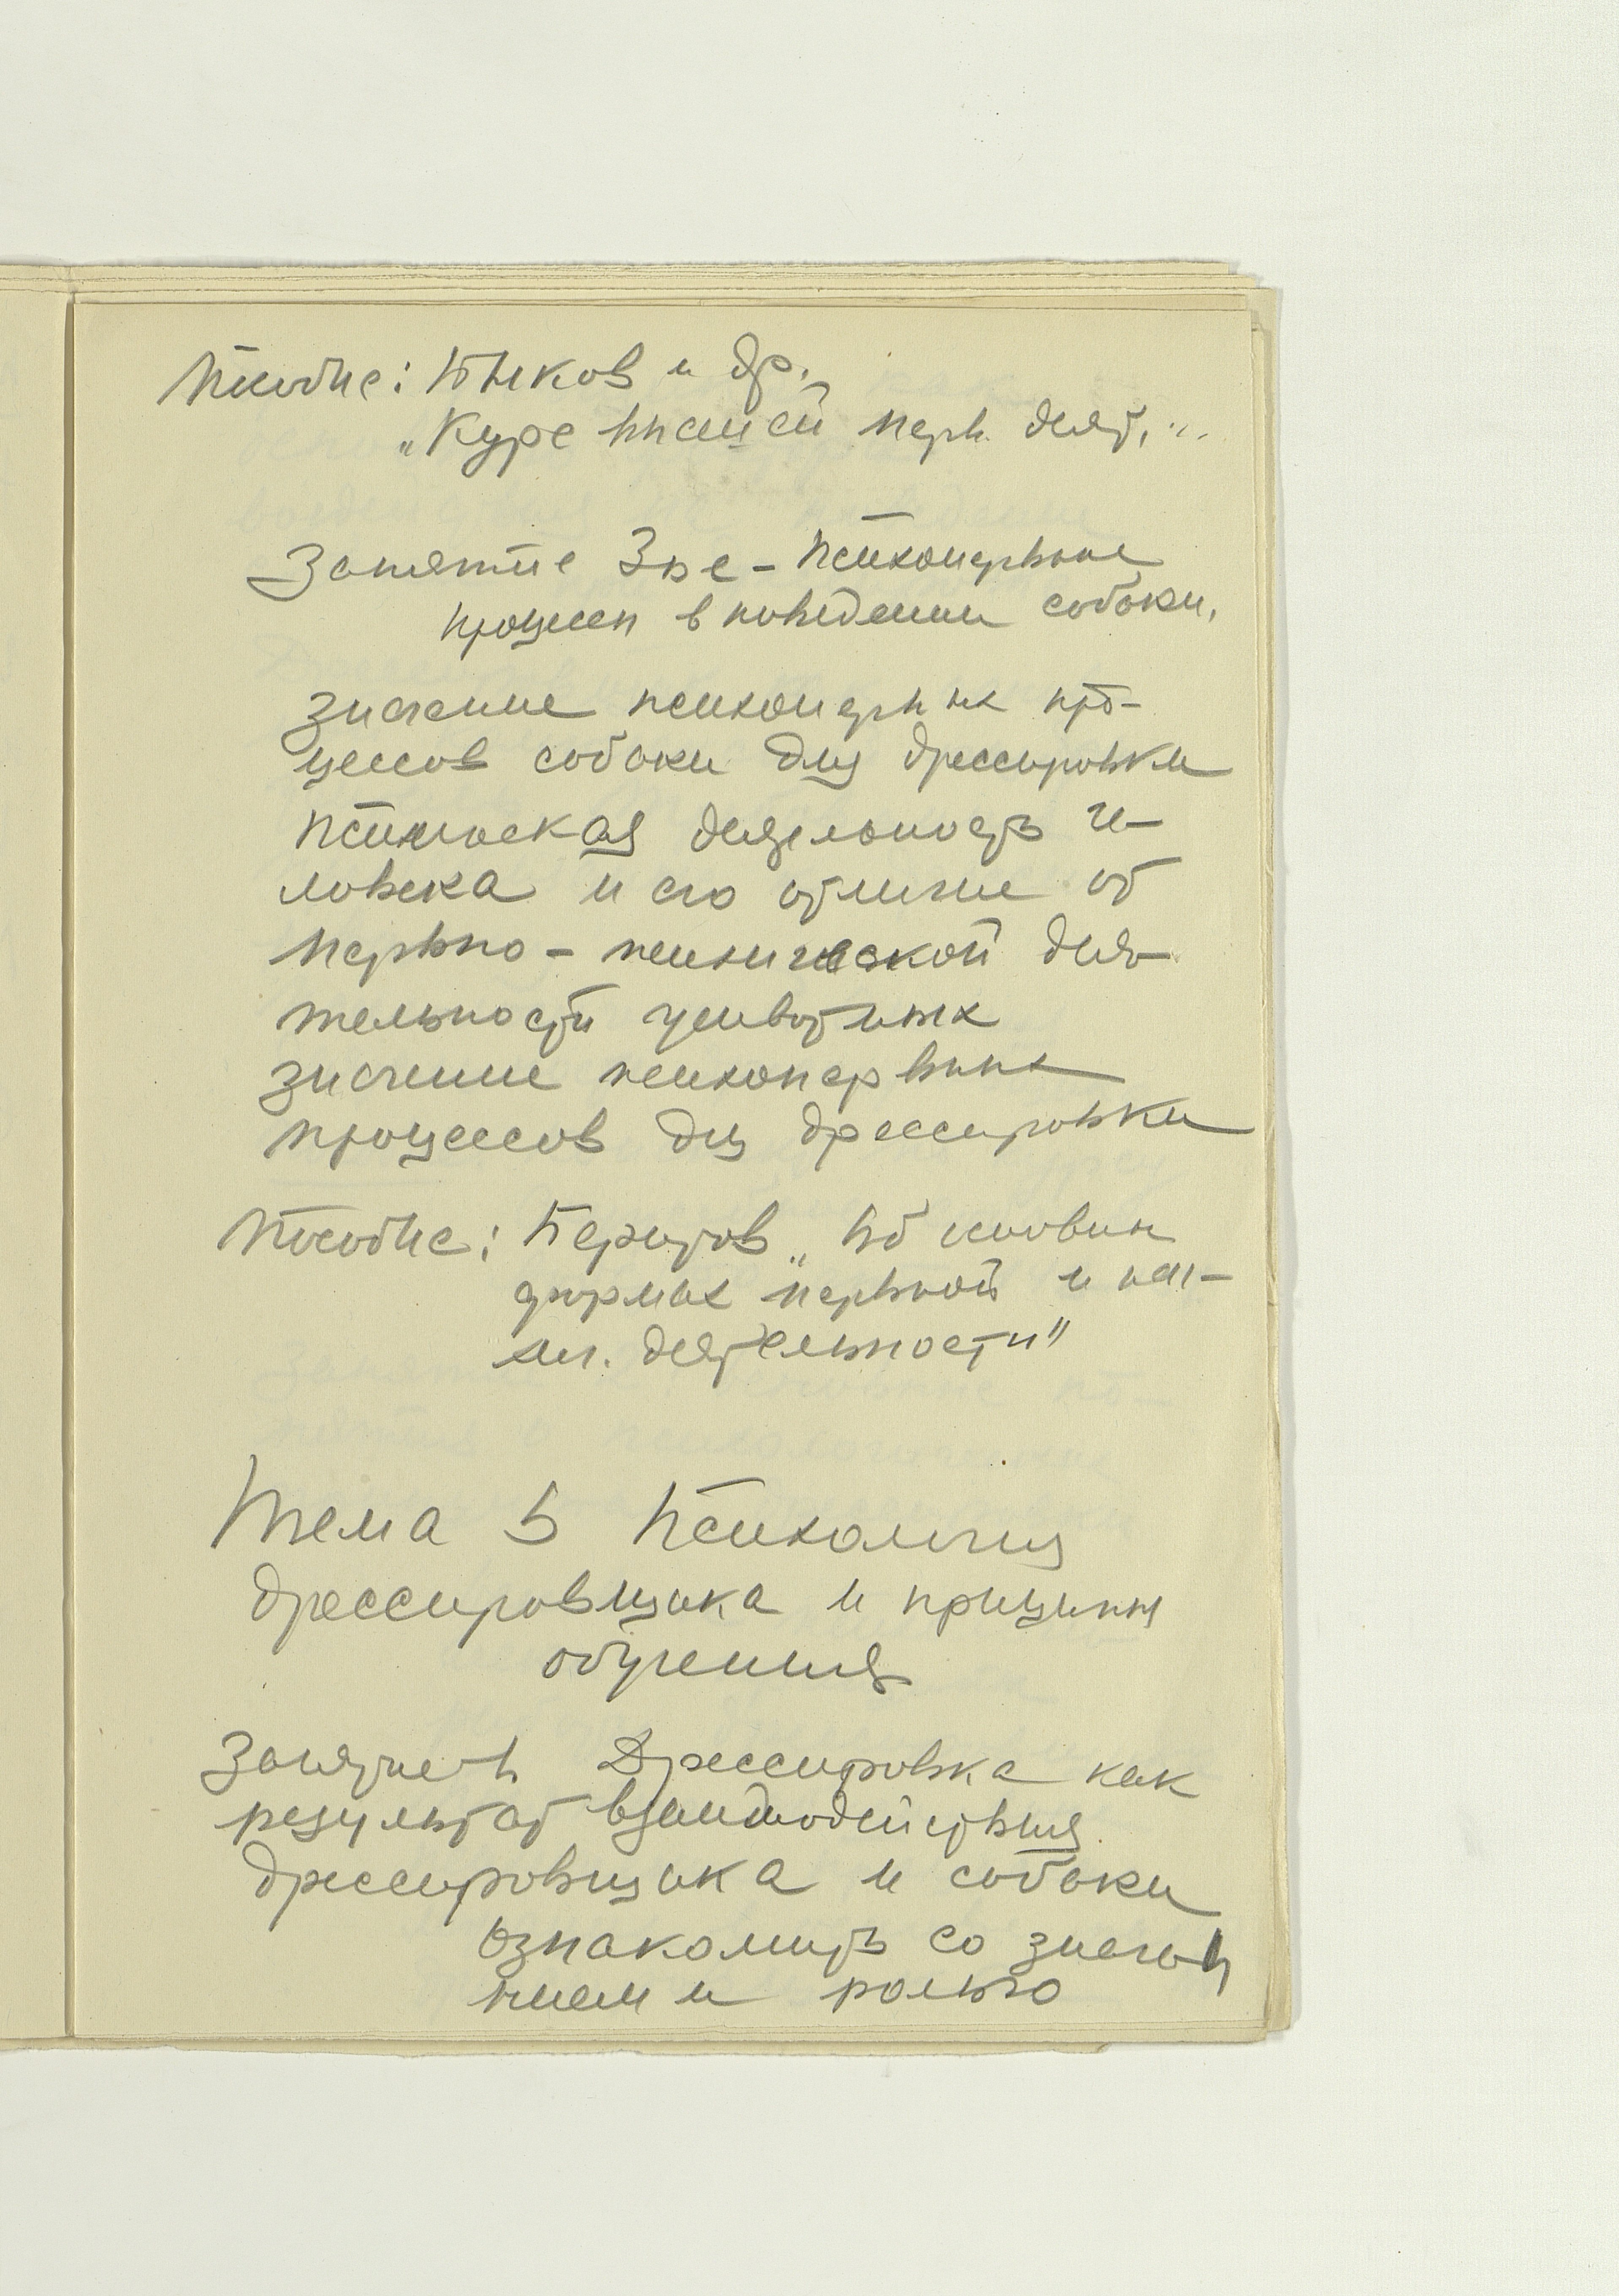 Пособие: Быков и др.
„Курс высшей нерв. деят."
Занятие 3ье - Психонервные
процессы в поведении собаки.
Значение психонервных про-
цессов собаки для дрессировки
Психическая деятельность че-
ловека и его отличие от
нервно-психической дея-
тельности животных
Значение психонервных
процессов для дрессировки
Пособие: Беритов „Об основных
формах нервной и пси-
хич. деятельности"
Тема 5 Психология
дрессировщика и принципы
обучения
Занятие 1. Дрессировка как
результат взаимодействия
дрессировщика и собаки
Ознакомить со значе-
нием и ролью